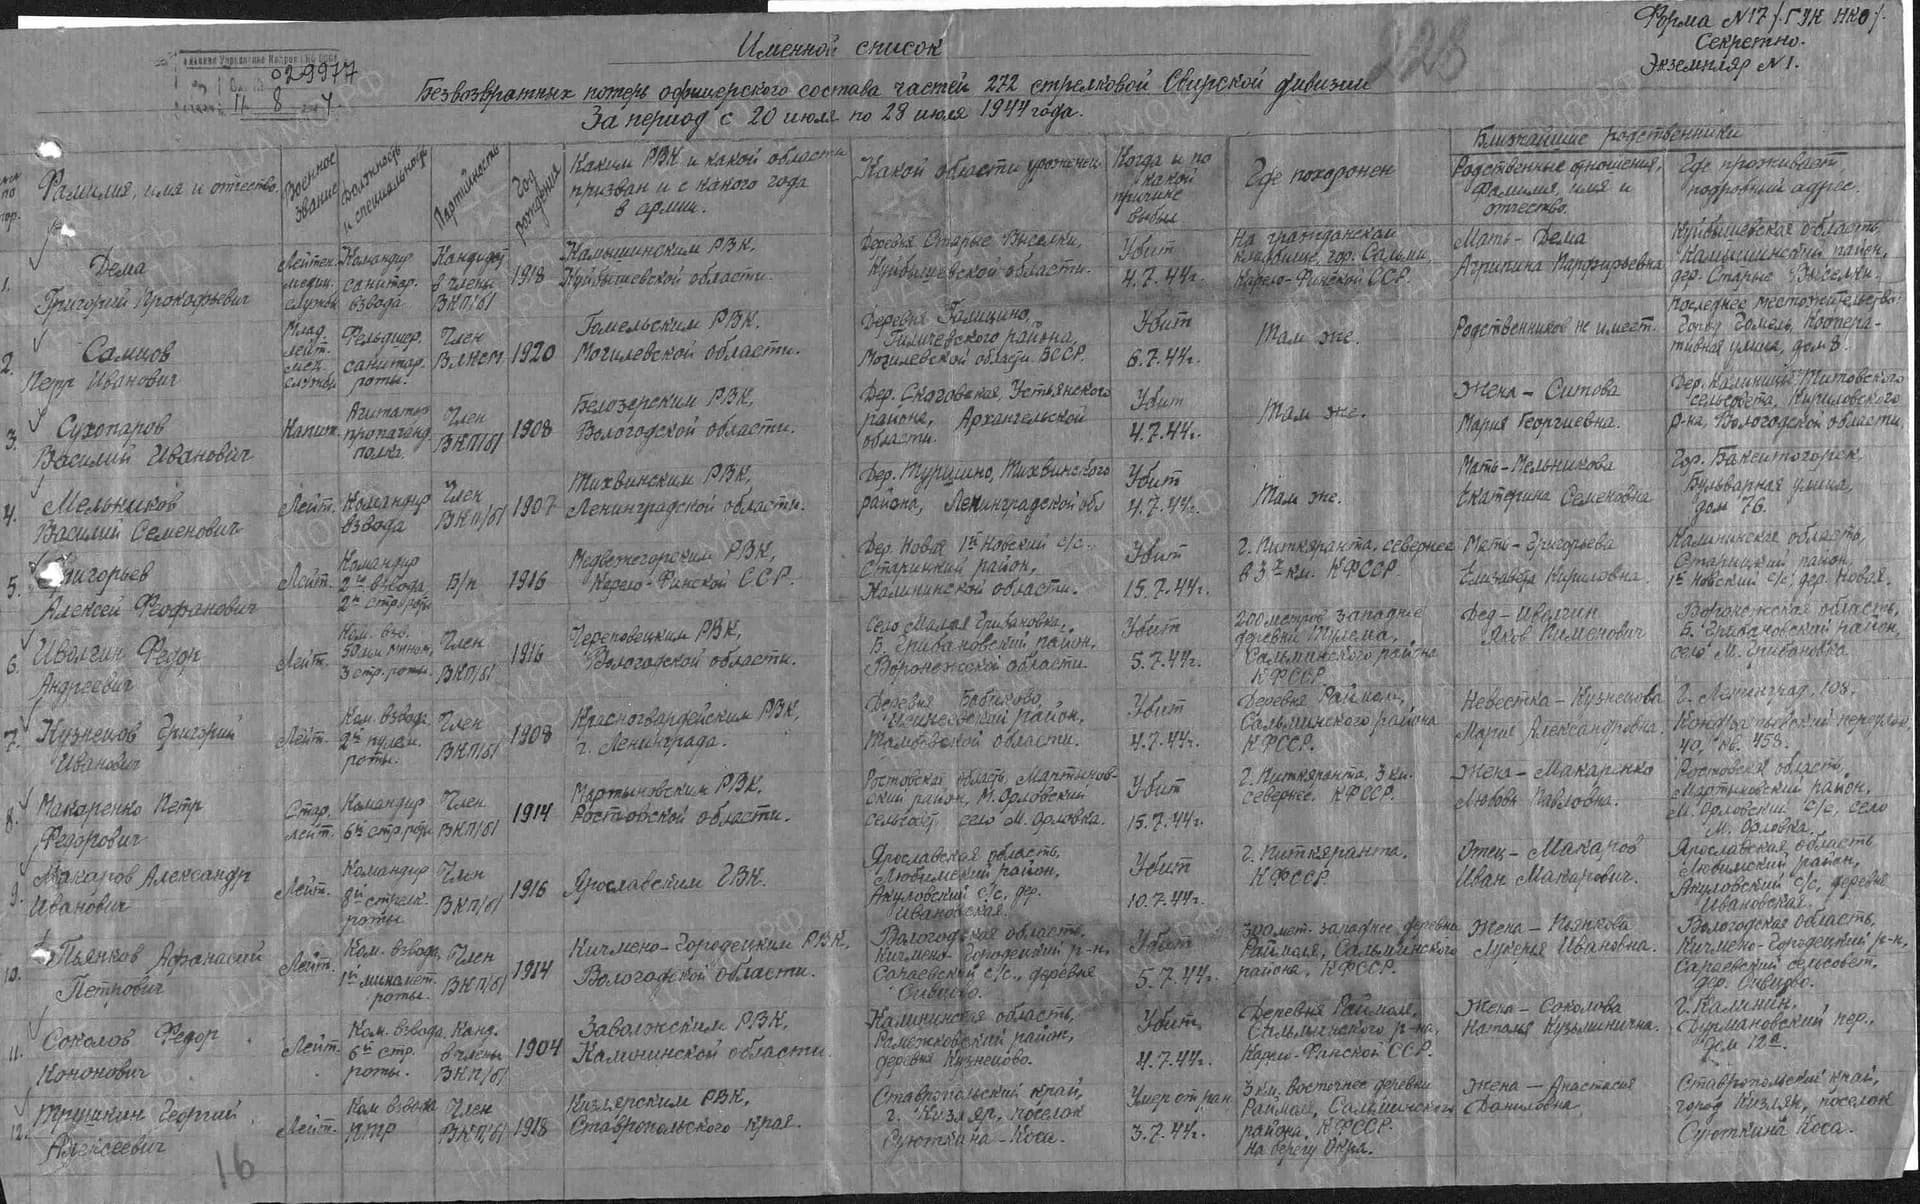 Форма №17 /ГУК НКО/.
Секретно.
Экземпляр №1.
029977
11 8 4
228
Именной список
Безвозвратных потерь офицерского состава частей 272 стрелковой Свирской дивизии
За период с 20 июля по 28 июля 1944 года.
№№ по пор.
Фамилия, имя и отчество.
Военное звание
Должность и специальность
Партийность
Год рождения
Каким РВК и какой области призван и с какого года в армии.
Какой области уроженец
Когда и по какой причине выбыл
Где похоронен
Ближайшие родственники
Родственные отношения, фамилия, имя и отчество.
Где проживает, подробный адрес.
1. Дема Григорий Прокофьевич
Лейтен. медиц. службы
Командир санитар. взвода
Кандидат в члены ВКП/б/
1918
Камышинским РВК, Куйбышевской области.
Деревня Старые Выселки, Куйбышевской области.
Убит 4.7.44г.
На гражданском кладбище, гор. Сальми, Карело-Финской ССР.
Мать - Дема Агрипина Парфирьевна
Куйбышевская область, Камышинский район, дер. Старые Выселки.
2. Самцов Петр Иванович
Млад. лейт. мед. службы
Фельдшер. санитар. роты.
Член ВЛКСМ
1920
Гомельским РВК, Могилевской области.
Деревня Галицино, района, Могилевской области БССР.
Убит 6.7.44г.
Там же.
Родственников не имеет.
Последнее местожительство: город Гомель, Кооперативная улица, дом 8.
3. Сухопаров Василий Иванович
Капит.
Агитатор пропаганд. полка.
Член ВКП/б/
1908
Белозерским РВК, Вологодской области.
Дер. Устьянского района, Архангельской области.
Убит 4.7.44г.
Там же.
Жена - Ситова Мария Георгиевна.
Дер. Калиницы Титовского сельсовета, Кириловского р-на, Вологодской области.
4. Мельников Василий Семенович
Лейт.
Командир взвода
Член ВКП/б/
1907
Тихвинским РВК, Ленинградской области.
Дер. Туршино, Тихвинского района, Ленинградской обл
Убит 4.7.44г.
Там же.
Мать - Мельникова Екатерина Семеновна
Гор. Бакситогорск, Бульварная улица, дом 76.
5. Григорьев Алексей Феофанович
Лейт.
Командир 2го взвода 2й стр. роты
Б/п
1916
Медвежегорским РВК, Карело-Финской ССР.
Дер. Новая 1й Новский с/с. Старицкий район, Калининской области.
Убит 15.7.44г.
Г. Питкяранта, севернее в 3х км. КФССР.
Мать - Григорьева Елизавета Кириловна.
Калининская область, Старицкий район, 1й Новский с/с, дер. Новая.
6. Иволгин Федор Андреевич
Лейт.
Ком. взв. 50 мм мином. 3 стр. роты.
Член ВКП/б/
1916
Череповецким РВК, Вологодской области.
Село Малая Грибановка, Б. Грибановский район, Воронежской области
Убит 5.7.44г.
200 метров западнее деревни Сальминского района КФССР
Дед - Иволгин Яков Пименович
Воронежская область, Б. Грибановский район, село М. Грибановка
7. Кузнецов Григорий Иванович
Лейт.
Ком. взвода 2й пулем. роты.
Член ВКП/б/
1908
Красногвардейским РВК, г. Ленинграда.
Деревня Бобиково, район, Тамбовской области.
Убит 4.7.44г.
Деревня Раймоля, Сальминского района КФССР.
Невестка - Кузнецова Мария Александровна.
Г. Ленинград, 108, переулок, 40, кв. 458.
8. Макаренко Петр Федорович
Стар. лейт.
Командир 6й стр. роты
Член ВКП/б/
1914
Мартыновским РВК, Ростовской области.
Ростовская область, Мартыновский район, М. Орловский сельсовет село М. Орловка.
Убит 15.7.44г.
Г. Питкяранта, 3 км. севернее. КФССР.
Жена - Макаренко Любовь Павловна.
Ростовская область, Мартыновский район, М. Орловский с/с, село М. Орловка.
9. Макаров Александр Иванович
Лейт.
Командир 8й стрелк. роты
Член ВКП/б/
1916
Ярославским ГВК.
Ярославская область, Любимский район, Акуловский с/с, дер. Ивановская.
Убит 10.7.44г.
Г. Питкяранта. КФССР
Отец - Макаров Иван Макарович.
Ярославская область Любимский район, Акуловский с/с, деревня Ивановская.
10. Пьянков Афанасий Петрович
Лейт.
Ком. взвода, 1й миномет. роты.
Член ВКП/б/
1914
Кичмено-Городецким РВК, Вологодской области.
Вологодская область, Кичмено-Городецкий р-н, Сараевский с/с., деревня Сивцево.
Убит 5.7.44г.
300 мет. западнее деревни Раймоля, Сальминского района, КФССР.
Жена - Пьянкова Лукенья Ивановна.
Вологодская область, Кичмено-Городецкий р-н, Сараевский сельсовет, дер. Сивцево.
11. Соколов Федор Кононович
Лейт.
Ком. взвода 6й стр. роты.
Канд. в члены ВКП/б/
1904
Заволжским РВК, Калининской области.
Калининская область, Рамежковский район, деревня Кузнецово.
Убит, 4.7.44г.
Деревня Раймоля, Сальминского р-на, Карело-Финской ССР.
Жена - Соколова Наталья Кузьминична.
Г. Калинин, Дурмановский пер., дом 12а.
12. Трушкин Георгий Алексеевич
Лейт.
Ком взвода ПТР
Член ВКП/б/
1918
Кизлярским РВК, Ставропольского края.
Ставропольский край, г. Кизляр, поселок Суюткина-Коса.
Умер от ран 3.7.44г.
3 км. восточнее деревни Раймоля, Сальминского района, КФССР. На берегу озера.
Жена - Анастасия Даниловна
Ставропольский край, город Кизляк, поселок Суюткина Коса.
16